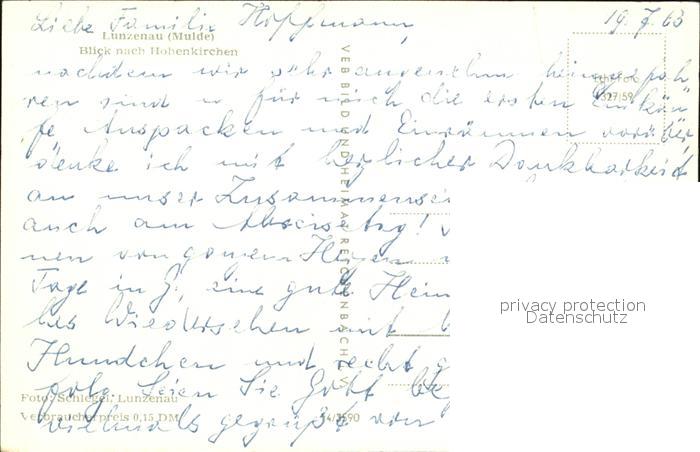 Liebe Familie Hoffmann, 19.7.63
Lunzenau (Mulde)
Blick nach Hohenkirchen
nachdem wir sehr angenehm heimgefah
ren sind u für mich die ersten Einkäu
fe Auspacken und Einräumen vorüber
denke ich mit herzlicher Dankbarkeit
an unser Zusammensei
auch am Abreisetag!
nen von ganzem Herzen
Tage in G, eine gute Heim
bes Wiedersehen mit
Hundchen und recht g
folg Seien Sie Gott be
Foto: Schlegel, Lunzenau
Verbraucherpreis 0,15 DM
vielmals gegrüßt von
VEB BILD UND HEIMAT REICHENBACH
Echt Foto
privacy protection
Datenschutz